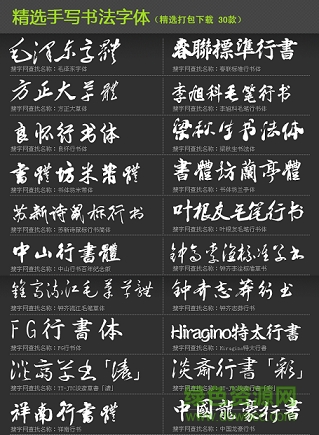 精选手写书法字体（精选打包下载 30款）
毛泽东字體
搜字网查找名称：毛泽东字体
春聯標準行書
搜字网查找名称：春联标准行书体
方正大草體
搜字网查找名称：方正大草体
李旭科毛笔行书
搜字网查找名称：李旭科毛笔行书
良怀行书体
搜字网查找名称：良怀行书体
梁秋生书法体
搜字网查找名称：梁秋生书法体
書體坊米芾體
搜字网查找名称：书体坊米芾体
書體坊蘭亭體
搜字网查找名称：书体坊兰亭体
苏新诗鼠标行书
搜字网查找名称：苏新诗鼠标行书简体
叶根友毛笔行书
搜字网查找名称：叶根友毛笔行书体
中山行書體
搜字网查找名称：中山行书百年纪念版
钟齐李洤标准草书
搜字网查找名称：钟齐李洤标准草书
搜字网查找名称：钟齐流江毛笔草体
钟齐志莽行书
搜字网查找名称：钟齐志莽行书
FG行書体
搜字网查找名称：FG行书体
Hiragino特太行書
搜字网查找名称：Hiragino特大行書
淡斎草书「濃」
搜字网查找名称：TT-JTC淡斎草書「濃」
淡斎行書「彩」
祥南行書體
搜字网查找名称：祥南行书
中國龍豪行書
搜字网查找名称：中国龙豪行书
绿色资源网